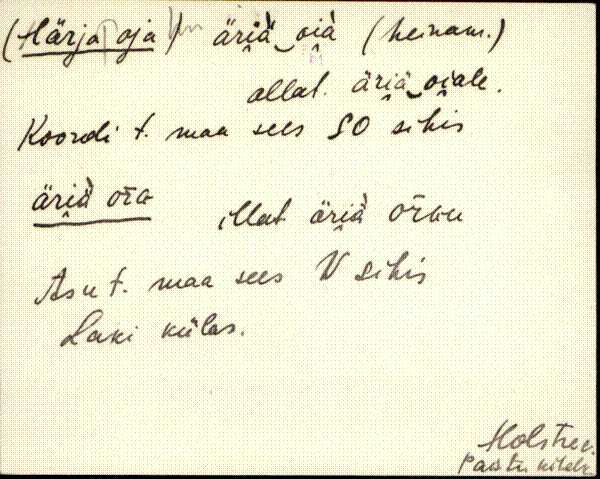 (Härja oja) äri̯ä̀ oi̯à (heinam.)
allat. äri̯ä oi̯ale.
Koordi t. maa sees SO sihis
äri̯ä̀ ōra illat äri̯ä̀ ōrau
Asu t. maa sees N sihis
Laki külas.
Holstre v.
Paistu kihelk.